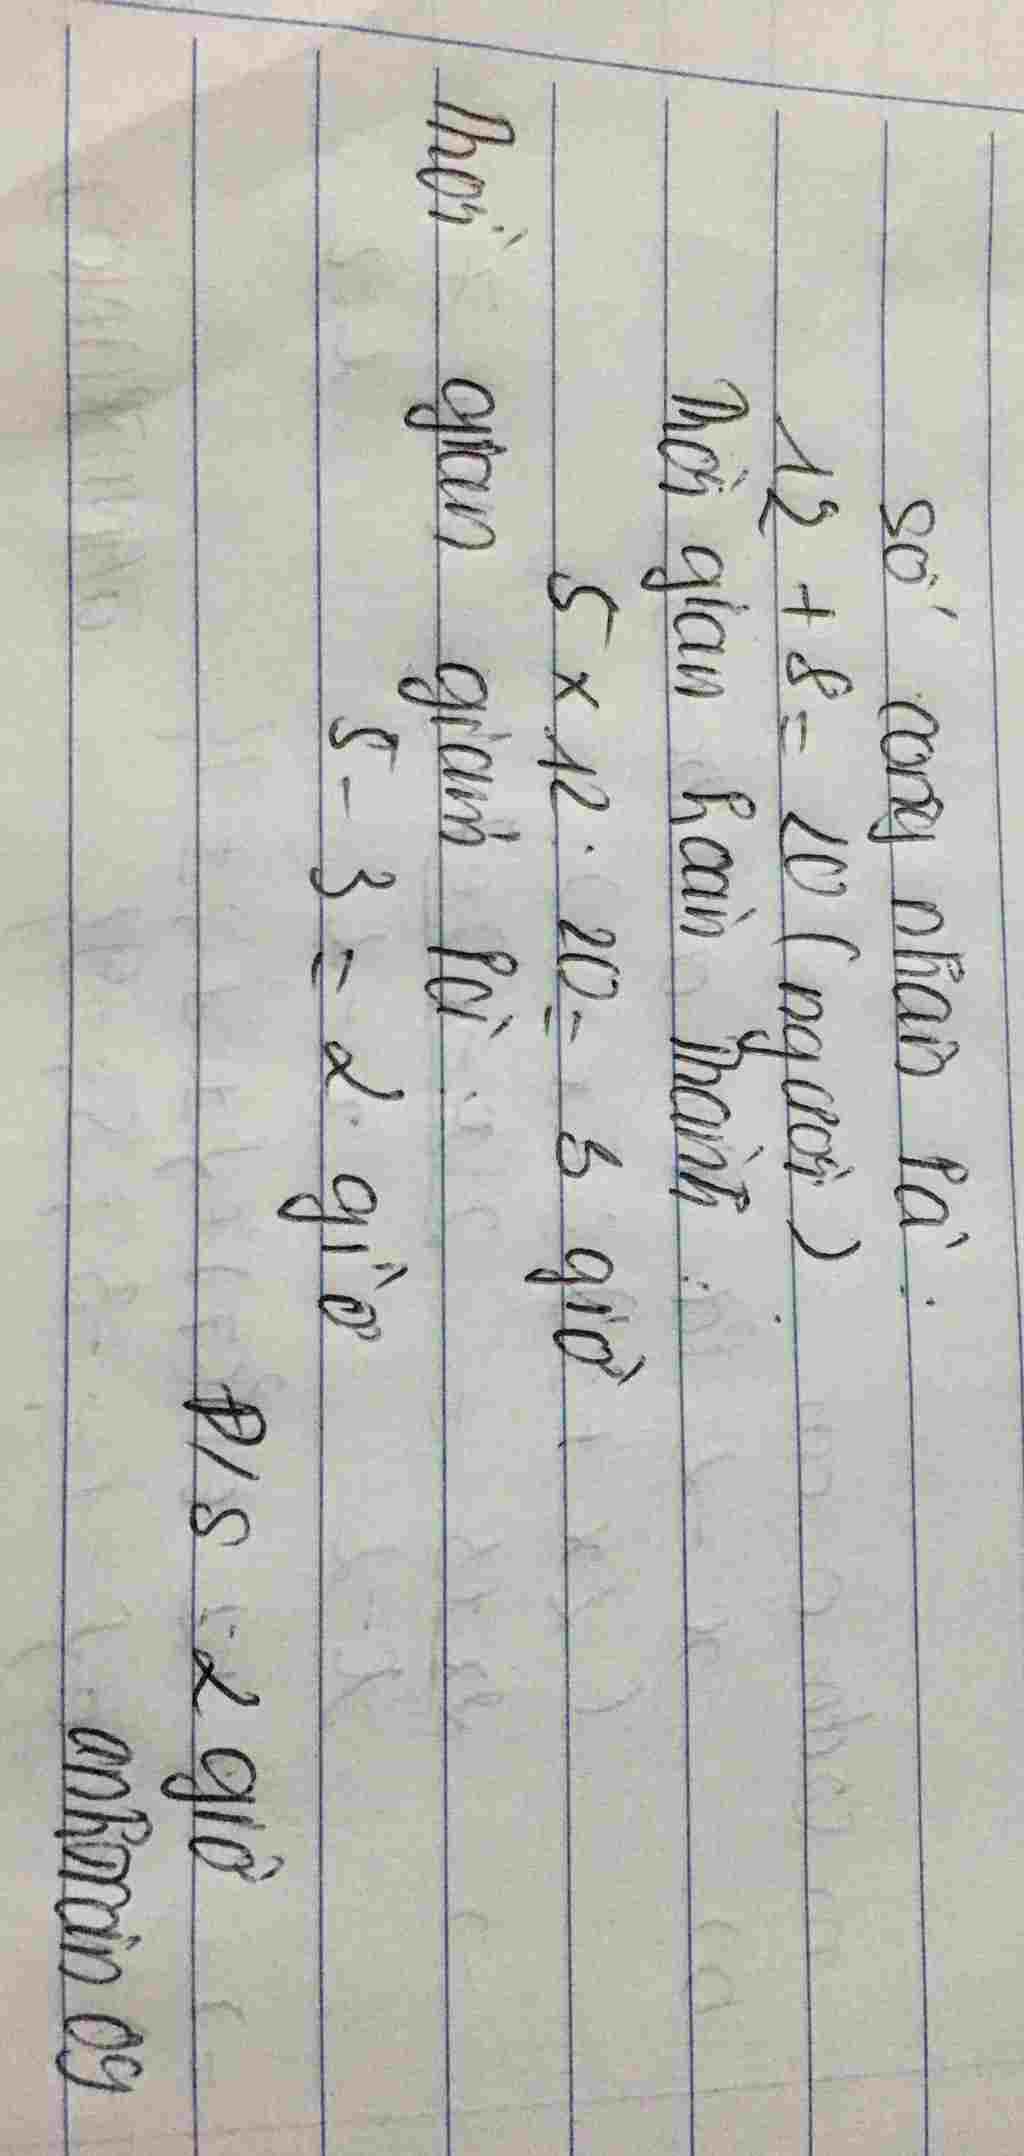 Số công nhân là :
12 + 8 = 20 ( người )
Thời gian hoàn thành :
5 x 12 : 20 = 3 giờ
Thời gian giảm là :
5 - 3 = 2 giờ
Đ/S : 2 giờ